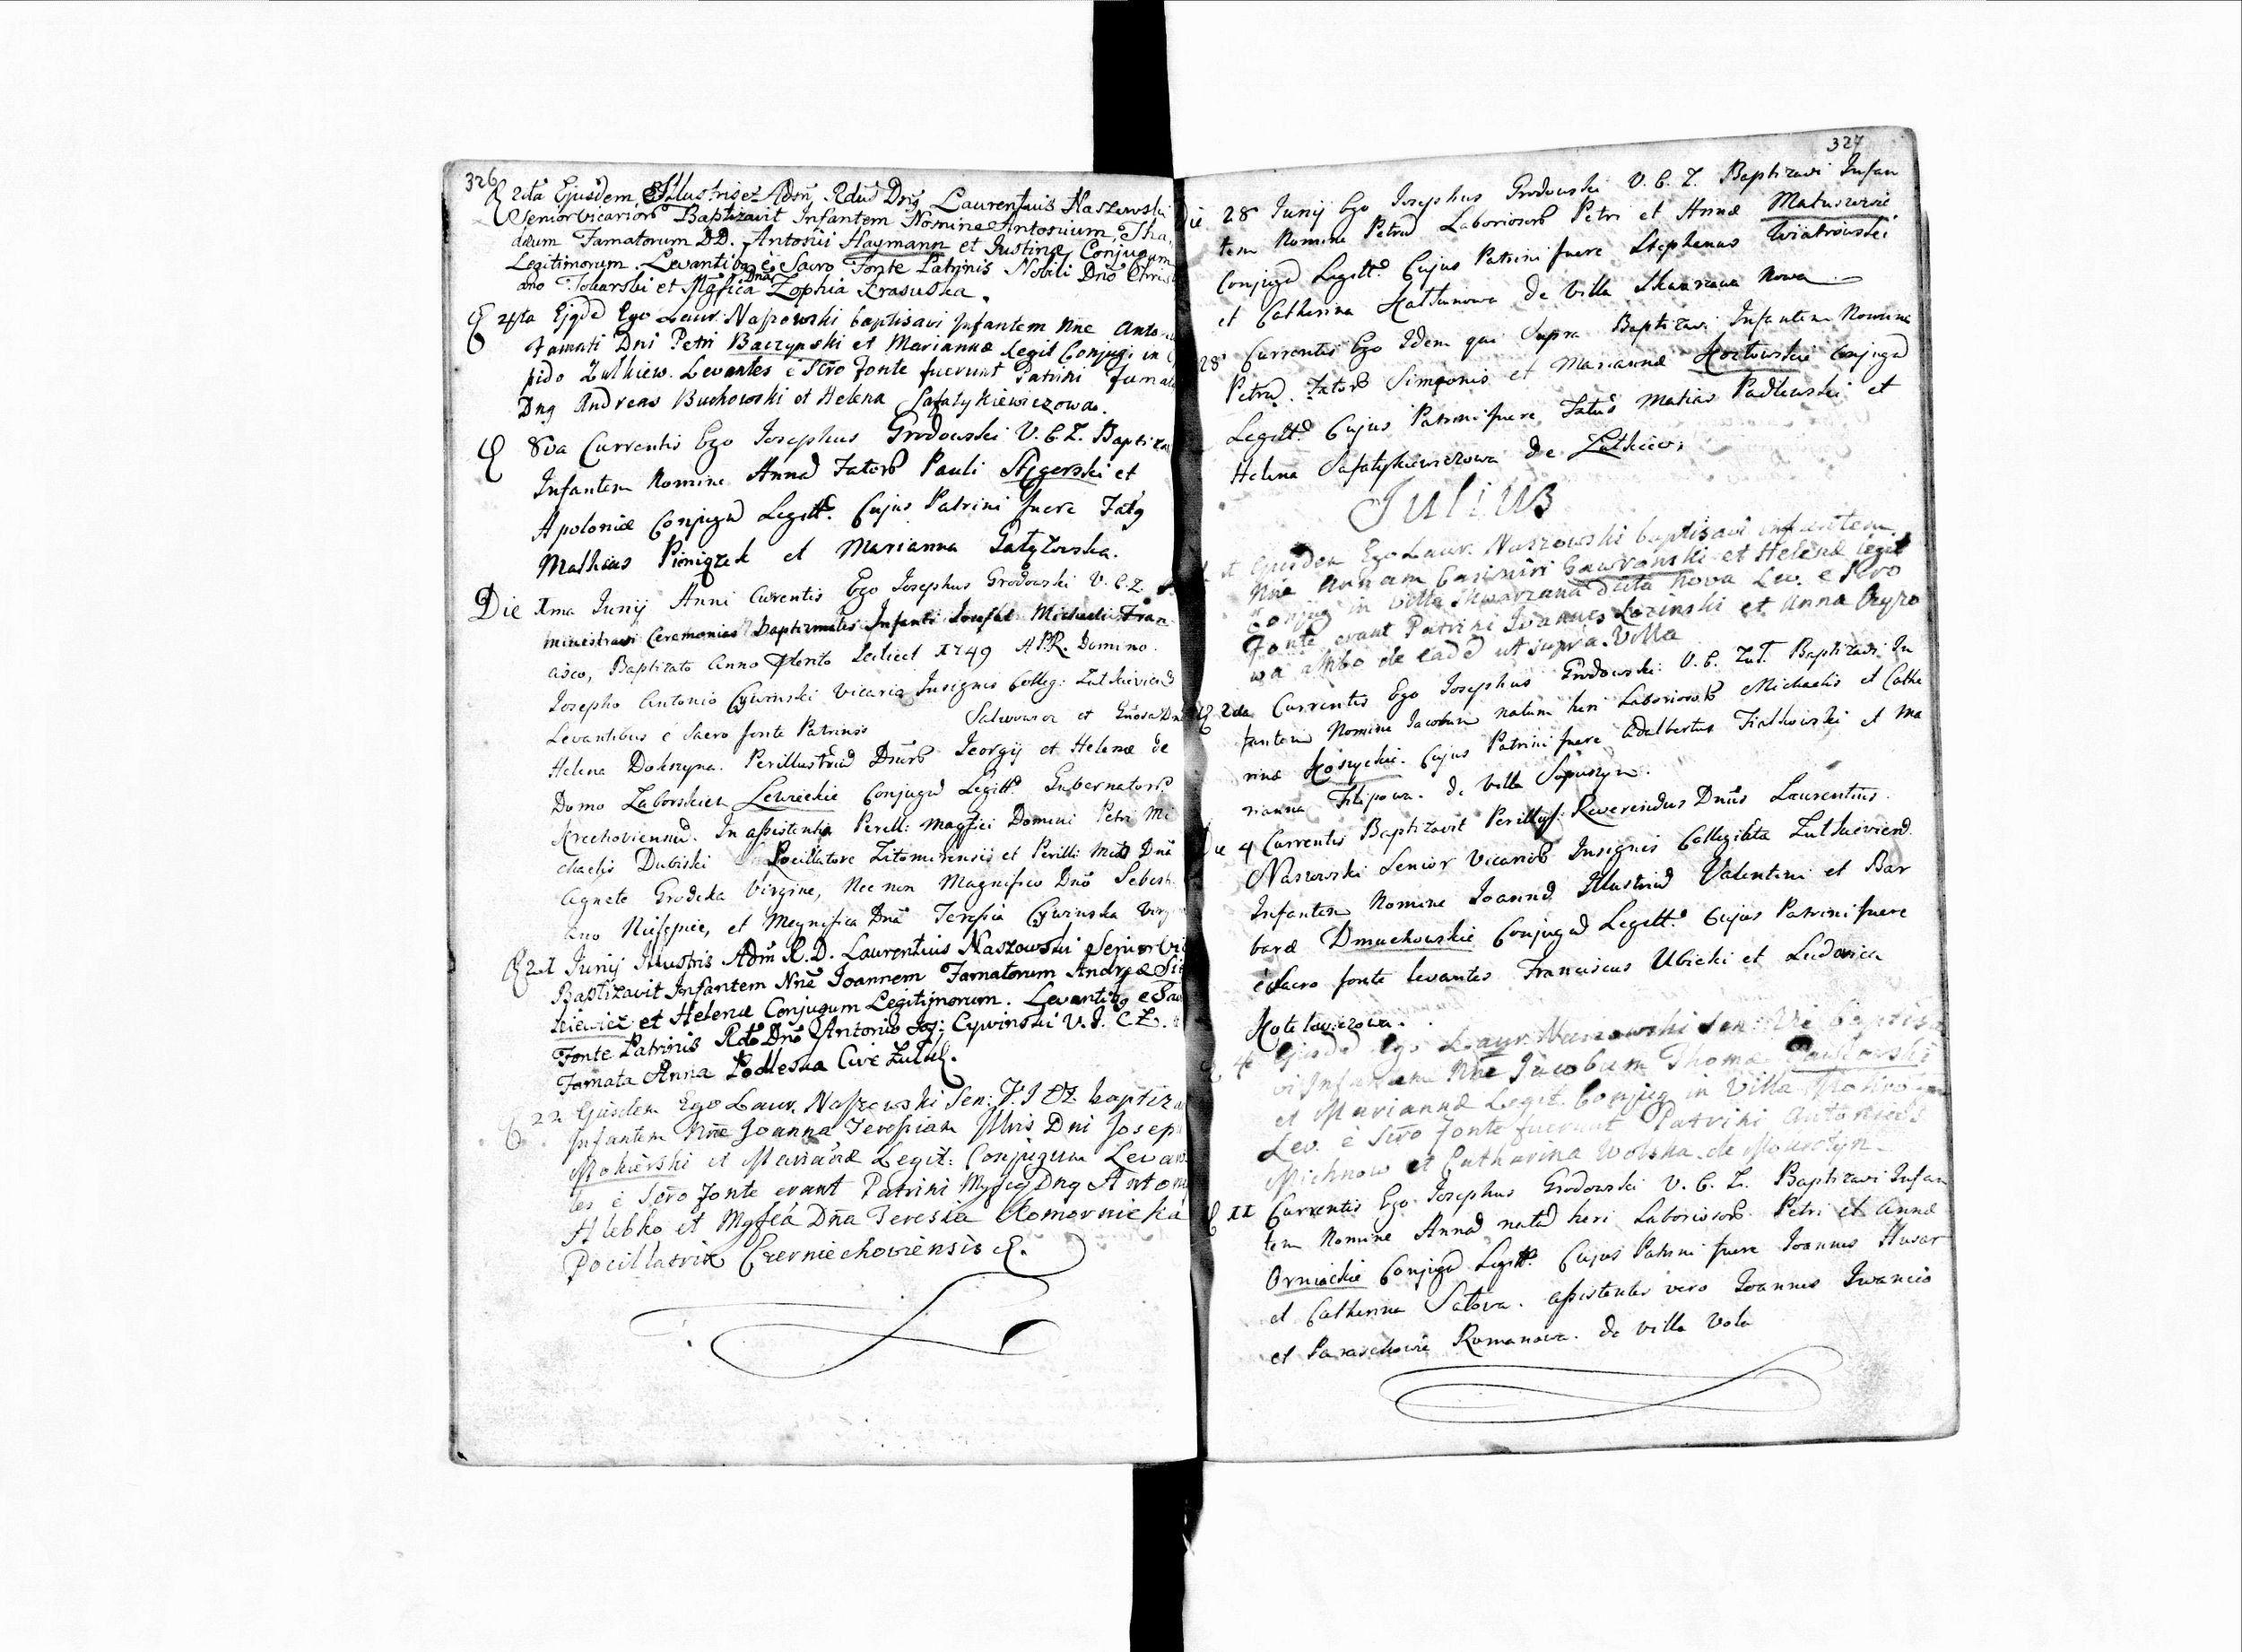 326
2da Ejusdem Illustris et Adm̃ Rdus Dnus Laurentius Naszowski
Senior Vicariorũ Baptizavit Infantem Nomine Antonium, Tha,
deum Famatorum DD. Antonii Haymann et Justinæ Conjugum
Legitimorum. Levantibq è Sacro Fonte Patrinis Nobili Dno
ano Tokarski et Mgfica Dna Zophia Krasuska.
4ta Ejqde Ego Laur. Naszowski baptisavi Infantem Nne Anto
Famati Dni Petri Baczynski et Mariannæ Legit Conjugũ in
pido Zulkiew. Levantes è Scro Fonte fuerunt Patrini Famat
Dnq Andreas Buchowski et Helena Safatykiewiczowa.
8va Currentis Ego Josephus Grodowski V. C. Z. Baptiza
Infantem Nomine Annam Fatorũ Pauli Stegerski et
Apoloniæ Conjugum Legitt. Cujus Patrini fuere Fatq
Mathias Pieniązek et Marianna Gałyzowska.
Die Xma Junij Anni Currentis Ego Josephus Grodowski V. C. Z.
ministravi Ceremonias Baptizmales Infanti Michaeli Fran
cisco, Baptizato Anno Scilicet 1749 A P.R. Domino
Josepho Antonio Cywinski Vicario Insignis Colleg: Zulkievien
Levantibus è Sacro fonte Patrinis
Helena Perillustrium Dnorũ Georgij et Helenæ de
Domo Zaborskich Lewickie Conjugum Legitt. Gubernatorũ
Krechoviennũ. In assistentia Perill: Magfici Domini Petri Mi
chaelis Dubiski Pocillatore Zitomirensis et Perilli Dna
Agnete Grodzka Virgine, Nec non Magnifico Dno Sebasti
ano et Magnifica Dna Teresia Cywinska Virg
21 Junij Illustris Adm R. D. Laurentius Naszowski Senior Vi
Baptizavit Infantem Nne Joannem Famatorum Andreæ
kiewicz et Helenæ Conjugum Legitimorum. Levantibq e Sac
Fonte Patrinis Rdo Dno Antonio Jos: Cywinski V. I. C. Z.
Famata Anna Podleska Cive Zulk.
22 Ejusdem Ego Laur. Naszowski Sen: V. I. C. Z. baptiza
Infantem Nne Joanna, Teresiam Illris Dni Josep
Mokierski et Mariannæ Legit: Conjugum Levan
tes è Scro Fonte erant Patrini Mgfcq Dnq Anton
Hlebko et Mgfca Dna Teresia Komornicka
Pocillatrix Czerniechoviensis
327
Die 28 Junij Ego Josephus Grodowski V. C. Z. Baptizavi Infan
tem Nomine Petrum Laboriosorũ Petri et Annæ Matuszewie
Conjugum Legitt. Cujus Patrini fuere Stephanus Wiatrowski
et Catherina de Villa Skwarzawa Nowa
28 Currentis Ego Idem qui Supra Baptizavi Infantem Nomine
Petrum. Fatorũ Simeonis et Mariannæ Kozłowskie Conjugum
Legitt. Cujus Patrini fuere Fatus Matias Padlewski et
Helena Safatykiewiczowa de Zulkiew.
Julius
Ejusdem Ego Laur. Naszowski baptisavi infantem
Nne Annam Casimiri Gawronski et Helenæ legit
Conjug in Villa Skwarzawa dicta Nova Lev. e Scro
Fonte erant Patrini Ivannes Lozinski et Anna
wa ambo de eadẽ ut supra Villa
2da Currentis Ego Josephus Grodowski V. C. Zul. Baptizavi In
fantem Nomine Jacobum natum heri Laboriosorũ Michaelis et Cathe
rinæ Koszyckie. Cujus Patrini fuere Adalbertus Fialkowski et Ma
rianna Filipowa. de Villa Soposzyn.
Die 4 Currentis Baptizavit Perillus. Reverendus Dnus Laurentius
Naszowski Senior Vicariorũ Insignis Collegiata Zulkieviens.
Infantem Nomine Joannem Illustrium Valentini et Bar
baræ Dmuchowskie Conjugum Legitt. Cujus Patrini fuere
è Sacro fonte levantes Franciscus Ubicki et Ludovica
Kotelowiczowa.
4 Ejusdem Ego Laur. Naszowski Sen: Vi baptisa
vi Infantem Nne Jacobum Thomæ Pawłowski
et Mariannæ Legit. Conjug in Villa
Lev. è Scro Fonte fuerunt Patrini Antonius
Michnow et Catharina Wolska de
11 Currentis Ego Josephus Grodowski V. C. Z. Baptizavi Infan
tem Nomine Annam natam heri Laboriosorũ Petri et Annæ
Orniackie Conjugum Legitt. Cujus Patrini fuere Joannes Husar
et Catherina Salowa. assistentes vero Joannes Iwancio
et Paraschowie Romanowa. de villa Vola